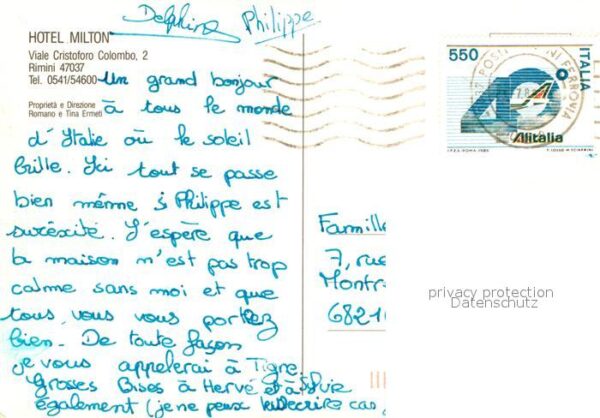 Delphine Philippe
HOTEL MILTON
Viale Cristoforo Colombo, 2
Rimini 47037
Tel. 0541/54600
Proprietà e Direzione
Romano e Tina Ermeti
Un grand bonjour
à tous le monde
d'Italie où le soleil
brille. Ici tout se passe
bien même si Philippe est
surexcité. J'espère que
la maison n'est pas trop
calme sans moi et que
tous, vous vous portez
bien. De toute façon
je vous appelerai à Tigre
Grosses Bises à Hervé et à Sylvie
également (je ne peux écrire car
550
ITALIA
Alitalia
I.P.Z.S. ROMA 1986
FERROVIA
Famille
7, rue
Montr
6821
privacy protection
Datenschutz